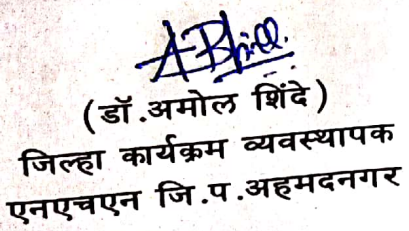 (डॉ.अमोल शिंदे)
जिल्हा कार्यक्रम व्यवस्थापक
एनएचएन जि.प.अहमदनगर